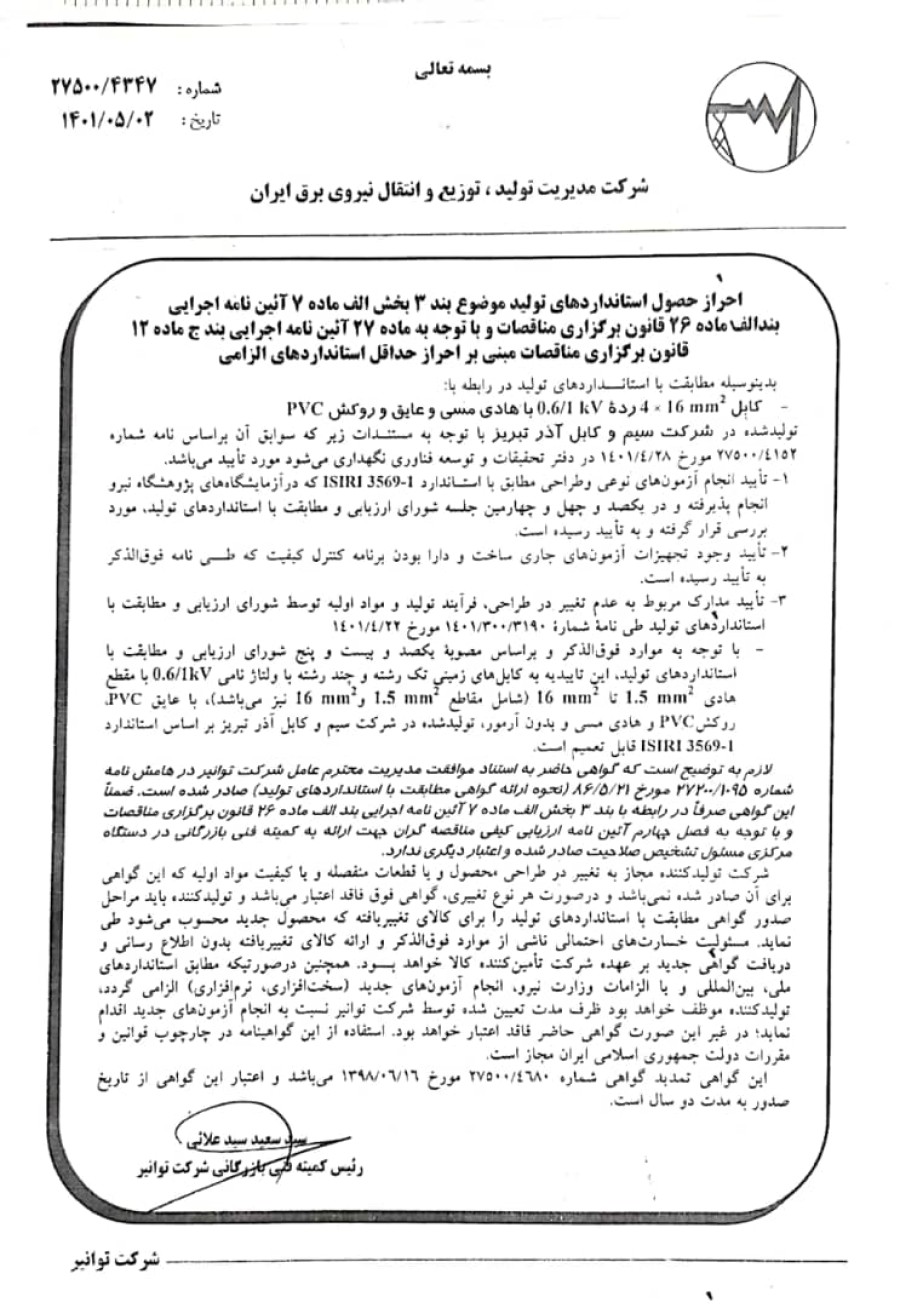 بسمه تعالی
شماره : ۲۷۵۰۰/۴۳۴۷
تاریخ : ۱۴۰۱/۰۵/۰۲
شرکت مدیریت تولید ، توزیع و انتقال نیروی برق ایران
احراز حصول استانداردهای تولید موضوع بند ۳ بخش الف ماده ۷ آئین نامه اجرایی
بندالف ماده ۲۶ قانون برگزاری مناقصات و با توجه به ماده ۲۷ آئین نامه اجرایی بند ج ماده ۱۲
قانون برگزاری مناقصات مبنی بر احراز حداقل استانداردهای الزامی
بدینوسیله مطابقت با استانداردهای تولید در رابطه با:
- کابل 4 × 16 mm² ردهٔ 0.6/1 kV با هادی مسی و عایق و روکش PVC
تولیدشده در شرکت سیم و کابل آذر تبریز با توجه به مستندات زیر که سوابق آن براساس نامه شماره
۲۷۵۰۰/٤۱٥۲ مورخ ۱٤۰۱/٤/۲۸ در دفتر تحقیقات و توسعه فناوری نگهداری می‌شود مورد تأیید می‌باشد.
۱- تأیید انجام آزمون‌های نوعی وطراحی مطابق با استاندارد ISIRI 3569-1 که درآزمایشگاه‌های پژوهشگاه نیرو
انجام پذیرفته و در یکصد و چهل و چهارمین جلسه شورای ارزیابی و مطابقت با استانداردهای تولید، مورد
بررسی قرار گرفته و به تأیید رسیده است.
۲- تأیید وجود تجهیزات آزمون‌های جاری ساخت و دارا بودن برنامه کنترل کیفیت که طی نامه فوق‌الذکر
به تأیید رسیده است.
۳- تأیید مدارک مربوط به عدم تغییر در طراحی، فرآیند تولید و مواد اولیه توسط شورای ارزیابی و مطابقت با
استانداردهای تولید طی نامهٔ شمارهٔ ۱٤۰۱/۳۰۰/۳۱۹۰ مورخ ۱٤۰۱/٤/۲۲
- با توجه به موارد فوق‌الذکر و براساس مصوبهٔ یکصد و بیست و پنج شورای ارزیابی و مطابقت با
استانداردهای تولید، این تاییدیه به کابل‌های زمینی تک رشته و چند رشته با ولتاژ نامی 0.6/1kV با مقطع
هادی 1.5 mm² تا 16 mm² (شامل مقاطع 1.5 mm² و 16 mm² نیز می‌باشد)، با عایق PVC،
روکش PVC و هادی مسی و بدون آرمور، تولیدشده در شرکت سیم و کابل آذر تبریز بر اساس استاندارد
ISIRI 3569-1 قابل تعمیم است.
لازم به توضیح است که گواهی حاضر به استناد موافقت مدیریت محترم عامل شرکت توانیر در هامش نامه
شماره ۲۷۲۰۰/۱۰۹۵ مورخ ۸۶/۵/۲۱ (نحوه ارائه گواهی مطابقت با استانداردهای تولید) صادر شده است. ضمناً
این گواهی صرفاً در رابطه با بند ۳ بخش الف ماده ۷ آئین نامه اجرایی بند الف ماده ۲۶ قانون برگزاری مناقصات
و با توجه به فصل چهارم آئین نامه ارزیابی کیفی مناقصه گران جهت ارائه به کمیته فنی بازرگانی در دستگاه
مرکزی مسئول تشخیص صلاحیت صادر شده و اعتبار دیگری ندارد.
شرکت تولیدکننده مجاز به تغییر در طراحی محصول و یا قطعات منفصله و یا کیفیت مواد اولیه که این گواهی
برای آن صادر شده نمی‌باشد و درصورت هر نوع تغییری، گواهی فوق فاقد اعتبار می‌باشد و تولیدکننده باید مراحل
صدور گواهی مطابقت با استانداردهای تولید را برای کالای تغییریافته که محصول جدید محسوب می‌شود طی
نماید. مسئولیت خسارت‌های احتمالی ناشی از موارد فوق‌الذکر و ارائه کالای تغییریافته بدون اطلاع رسانی و
دریافت گواهی جدید بر عهده شرکت تأمین‌کننده کالا خواهد بود. همچنین درصورتیکه مطابق استانداردهای
ملی، بین‌المللی و یا الزامات وزارت نیرو، انجام آزمون‌های جدید (سخت‌افزاری، نرم‌افزاری) الزامی گردد،
تولیدکننده موظف خواهد بود ظرف مدت تعیین شده توسط شرکت توانیر نسبت به انجام آزمون‌های جدید اقدام
نماید؛ در غیر این صورت گواهی حاضر فاقد اعتبار خواهد بود. استفاده از این گواهینامه در چارچوب قوانین و
مقررات دولت جمهوری اسلامی ایران مجاز است.
این گواهی تمدید گواهی شماره ۲۷۵۰۰/٤٦۸۰ مورخ ۱۳۹۸/۰٦/۱٦ می‌باشد و اعتبار این گواهی از تاریخ
صدور به مدت دو سال است.
سید سعید سید علائی
رئیس کمیته فنی بازرگانی شرکت توانیر
شرکت توانیر
۱